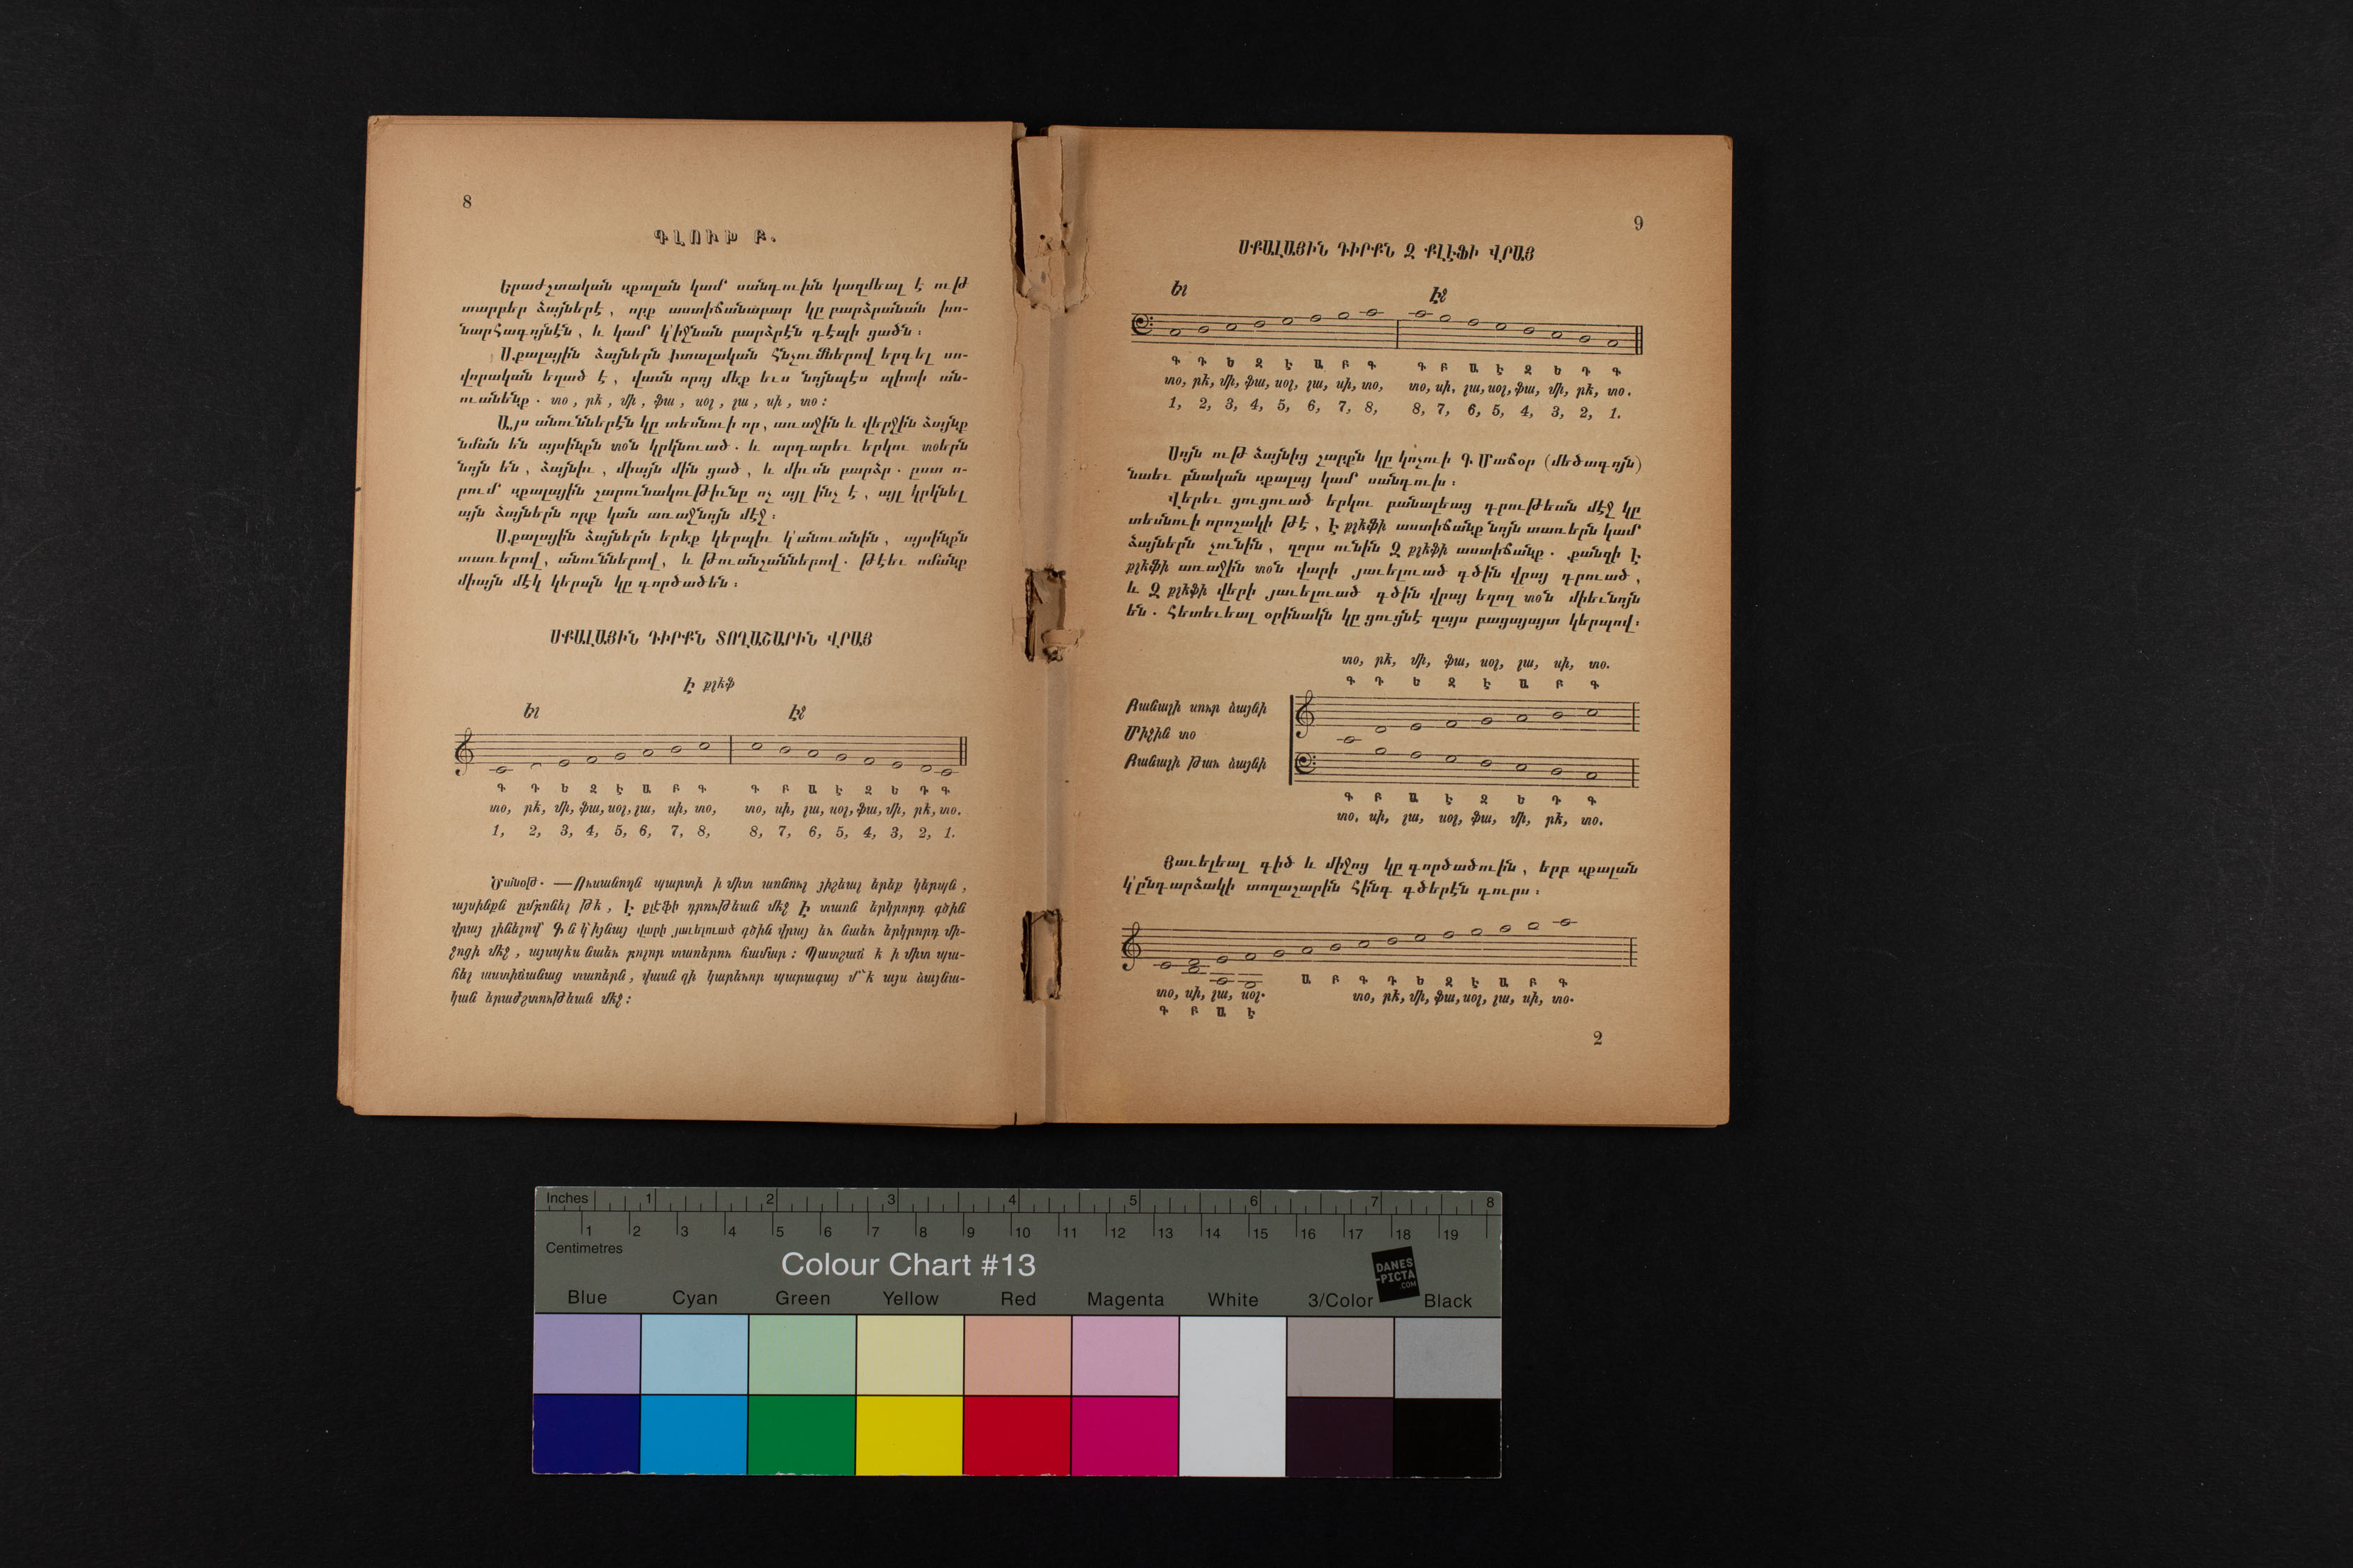 8
ԳԼՈՒԽ Բ.
Երաժշտական սքալան կամ սանդուխն կազմեալ է ութ
տարբեր ձայներէ, որք աստիճանաբար կը բարձրանան խո-
նարհագոյնէն, և կամ կ՚իջնան բարձրէն դէպի ցածն։
Սքալային ձայներն իտալական հնչումներով երգել սո-
վորական եղած է, վասն որոյ մեք եւս նոյնպէս պիտի ան-
ուանենք. տօ, րէ, մի, ֆա, սօլ, լա, սի, տօ։
Այս անուններէն կը տեսնուի որ, առաջին և վերջին ձայնք
նման են այսինքն տօն կրկնուած. և արդարեւ երկու տօերն
նոյն են, ձայնիւ, միայն մին ցած, և միւսն բարձր. ըստ ո-
րում սքալային շարունակութիւնը ոչ այլ ինչ է, այլ կրկնել
այն ձայներն որք կան առաջնոյն մէջ։
Սքալային ձայներն երեք կերպիւ կ՚անուանին, այսինքն
տառերով, անուններով, և թուանշաններով. թէեւ ոմանք
միայն մէկ կերպն կը գործածեն։
ՍՔԱԼԱՅԻՆ ԴԻՐՔՆ ՏՈՂԱՇԱՐԻՆ ՎՐԱՅ
Է քլէֆ
Ել Էջ
Գ Դ Ե Զ Է Ա Բ Գ Գ Բ Ա Է Զ Ե Դ Գ
տօ, րէ, մի, ֆա, սօլ, լա, սի, տօ, տօ, սի, լա, սօլ, ֆա, մի, րէ, տօ.
1, 2, 3, 4, 5, 6, 7, 8, 8, 7, 6, 5, 4, 3, 2, 1.
Ծանօթ. — Ուսանողն պարտի ի միտ առնուլ յիշեալ երեք կերպն,
այսինքն ըմբռնել թէ, Է քլէֆի դրութեան մէջ Է տառն երկրորդ գծին
վրայ լինելով Գ ն կ՚իյնայ վարի յաւելուած գծին վրայ եւ նաեւ երկրորդ մի-
ջոցի մէջ, այսպէս նաեւ բոլոր տառերու համար։ Պատշաճ է ի միտ պա-
հել աստիճանաց տառերն, վասն զի կարեւոր պարագայ մ՚է այս ձայնա-
կան երաժշտութեան մէջ։
9
ՍՔԱԼԱՅԻՆ ԴԻՐՔՆ Զ ՔԼԷՖԻ ՎՐԱՅ
Ել Էջ
Գ Դ Ե Զ Է Ա Բ Գ Գ Բ Ա Է Զ Ե Դ Գ
տօ, րէ, մի, ֆա, սօլ, լա, սի, տօ, տօ, սի, լա, սօլ, ֆա, մի, րէ, տօ.
1, 2, 3, 4, 5, 6, 7, 8, 8, 7, 6, 5, 4, 3, 2, 1.
Սոյն ութ ձայնից շարքն կը կոչուի Գ Մաճօր (մեծագոյն)
նաեւ բնական սքալայ կամ սանդուխ։
Վերեւ ցուցուած երկու բանալեաց դրութեան մէջ կը
տեսնուի որոշակի թէ, Է քլէֆի աստիճանք նոյն տառերն կամ
ձայներն չունին, զորս ունին Զ քլէֆի աստիճանք. քանզի Է
քլէֆի առաջին տօն վարի յաւելուած գծին վրայ դրուած,
և Զ քլէֆի վերի յաւելուած գծին վրայ եղող տօն միեւնոյն
են. Հետեւեալ օրինակն կը ցուցնէ զայս բացայայտ կերպով։
տօ, րէ, մի, ֆա, սօլ, լա, սի, տօ.
Գ Դ Ե Զ Է Ա Բ Գ
Բանալի սուր ձայնի
Միջին տօ
Բանալի թաւ ձայնի
Գ Բ Ա Է Զ Ե Դ Գ
տօ, սի, լա, սօլ, ֆա, մի, րէ, տօ.
Յաւելեալ գիծ և միջոց կը գործածուին, երբ սքալան
կ՚ընդարձակի տողաշարին հինգ գծերէն դուրս։
Ա Բ Գ Դ Ե Զ Է Ա Բ Գ
տօ, սի, լա, սօլ. տօ, րէ, մի, ֆա, սօլ, լա, սի, տօ.
Գ Բ Ա Է
2
Inches 1 2 3 4 5 6 7 8
1 2 3 4 5 6 7 8 9 10 11 12 13 14 15 16 17 18 19
Centimetres
Colour Chart #13
DANES
-PICTA
.COM
Blue Cyan Green Yellow Red Magenta White 3/Color Black